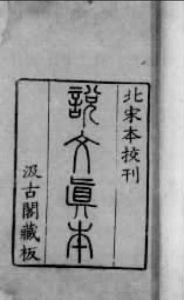 北宋本校刊
說文眞本
汲古閣藏板